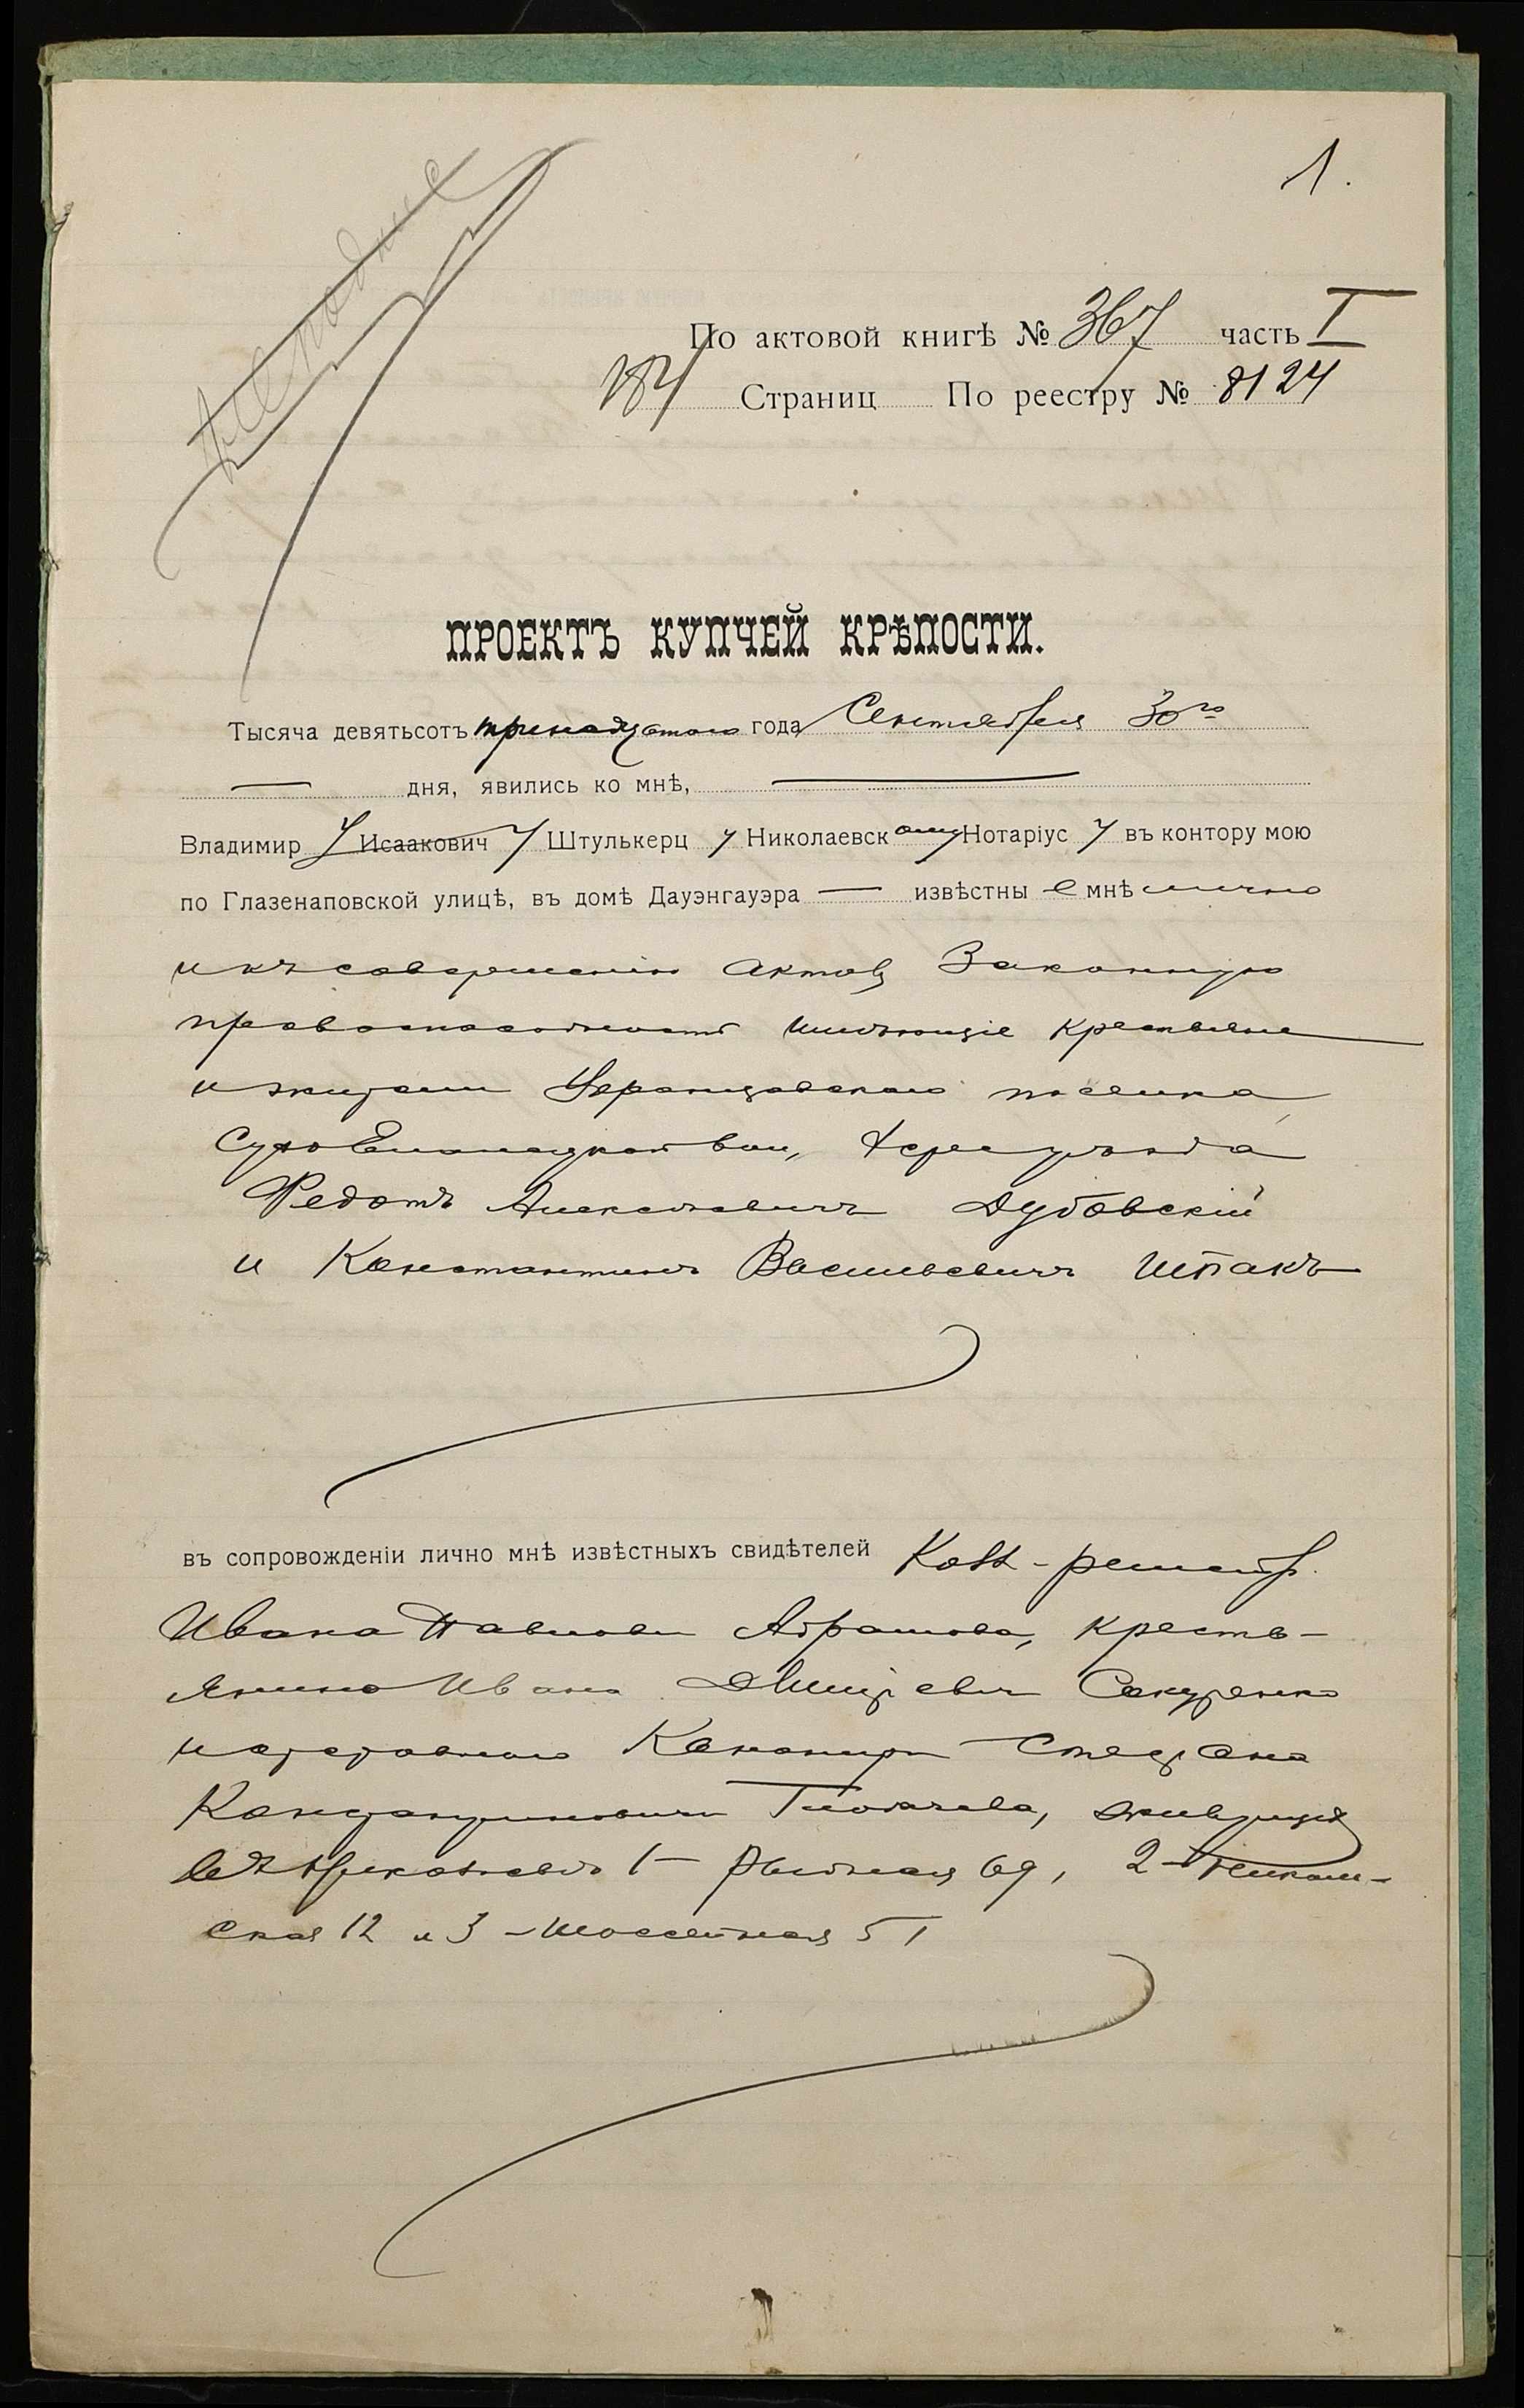 1.
По актовой книгѣ № 367 часть I
184 Страниц По реестру № 8124
ПРОЕКТЪ КУПЧЕЙ КРѢПОСТИ.
Тысяча девятьсотъ тринадцатаго года Сентября 30го
дня, явились ко мнѣ,
Владимир Исаакович Штулькерц Николаевск Нотаріус въ контору мою
по Глазенаповской улицѣ, въ домѣ Дауэнгауэра — извѣстные мнѣ лично
и къ совершенію актовъ законную
правоспособность имѣющіе крестьяне
и жители поселка
вол., Херс. уѣзда
Федотъ Алексѣевичъ Дубовскій
и Константинъ Васильевичъ Шпакъ
въ сопровожденіи лично мнѣ извѣстныхъ свидѣтелей Колл-регистр.
Ивана Павлов. Абрамова, кресть-
янина Ивана Дмитріевич
и отставного Степана
Константинович живущихъ
въ Николаевѣ 1— 69, 2—
ская 12 и 3 — 51